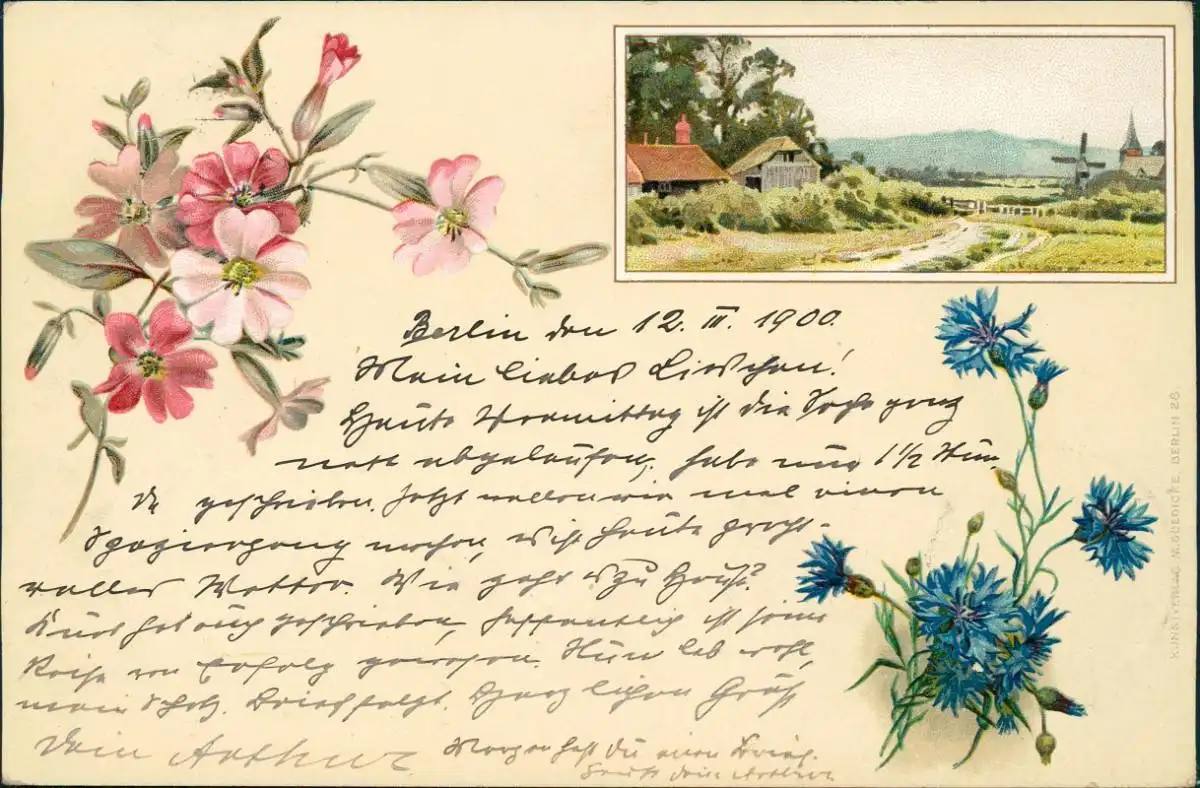 Berlin den 12. III. 1900.
Mein liebes Lieschen!
Heute Vormittag ist die Sache ganz
nett abgelaufen, habe nur 1½ Stun
de geschrieben. Jetzt wollen wir mal einen
Spaziergang machen, es ist heute pracht-
volles Wetter. Wie geht es zu Haus?
Kurt hat auch geschrieben, hoffentlich ist seine
Reise von Erfolg gewesen. Nun leb wohl,
mein Schatz. Brief folgt. Herzlichen Gruß
Dein Arthur
Morgen hast Du einen Brief.
Dein Arthur
KUNSTVERLAG M. GOEDICKE BERLIN 28